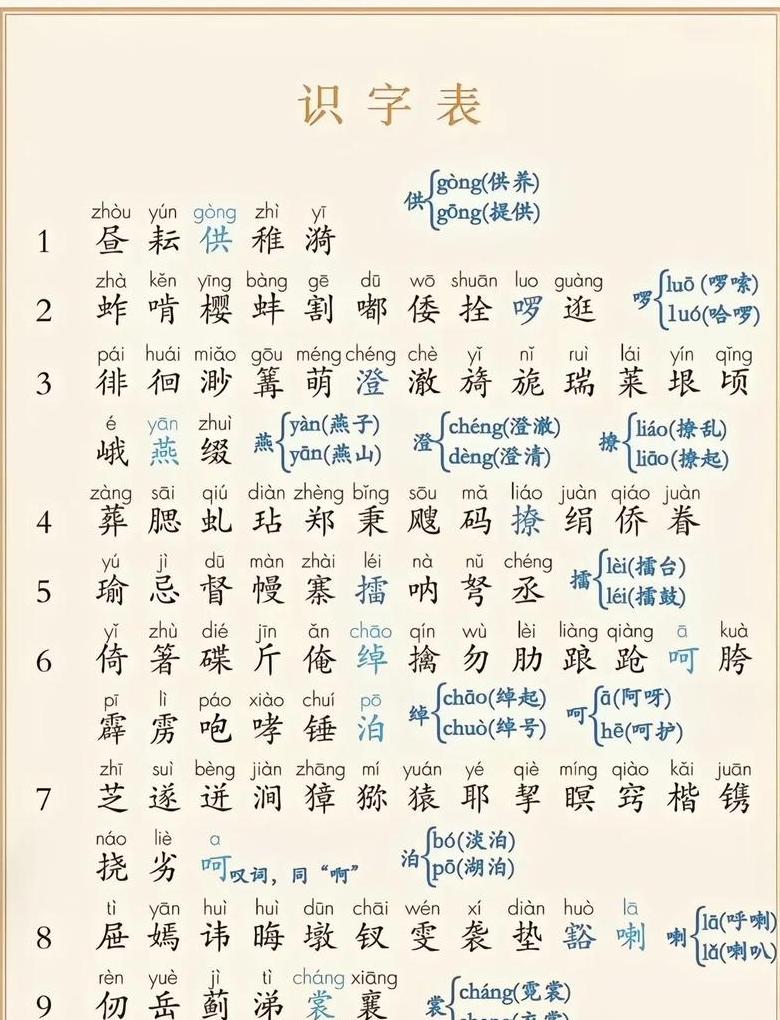 识字表
供 gòng(供养)
gōng(提供)
zhòu yún gòng zhì yī
1 昼 耘 供 稚 漪
zhà kěn yīng bàng gē dū wō shuān luo guàng
2 蚱 啃 樱 蚌 割 嘟 倭 拴 啰 逛
啰 luō (啰嗦)
luó(哈啰)
pái huái miǎo gōu méng chéng chè yǐ nǐ ruì lái yín qǐng
3 徘 徊 渺 篝 萌 澄 澈 旖 旎 瑞 莱 垠 顷
é yān zhuì
峨 燕 缀
燕 yàn(燕子)
yān(燕山)
澄 chéng(澄澈)
dèng(澄清)
撩 liáo(撩乱)
liāo(撩起)
zàng sāi qiú diàn zhèng bǐng sōu mǎ liáo juàn qiáo juàn
4 葬 腮 虬 玷 郑 秉 飕 码 撩 绢 侨 眷
yú jì dū màn zhài léi nà nǔ chéng
5 瑜 忌 督 幔 寨 擂 呐 弩 丞
擂 lèi(擂台)
léi(擂鼓)
yǐ zhù dié jīn ǎn chāo qín wù lèi liàng qiàng ā kuà
6 倚 箸 碟 斤 俺 绰 擒 勿 肋 踉 跄 呵 胯
pī lì páo xiào chuí pō
霹 雳 咆 哮 锤 泊
绰 chāo(绰起)
chuò(绰号)
呵 ā(阿呀)
hē(呵护)
zhī suì bèng jiàn zhāng mí yuán yé qiè míng qiào kǎi juān
7 芝 遂 迸 涧 獐 猕 猿 耶 挈 瞑 窍 楷 镌
náo liè a
挠 劣 呵叹词，同“啊”
泊 bó(淡泊)
pō(湖泊)
tì yān huì huì dūn chāi wén xí diàn huò lā
8 屉 嫣 讳 晦 墩 钗 雯 袭 垫 豁 喇
喇 lā(呼喇)
lǎ(喇叭)
rèn yuè jì tì cháng xiāng
9 仞 岳 蓟 涕 裳 襄
裳 cháng(霓裳)